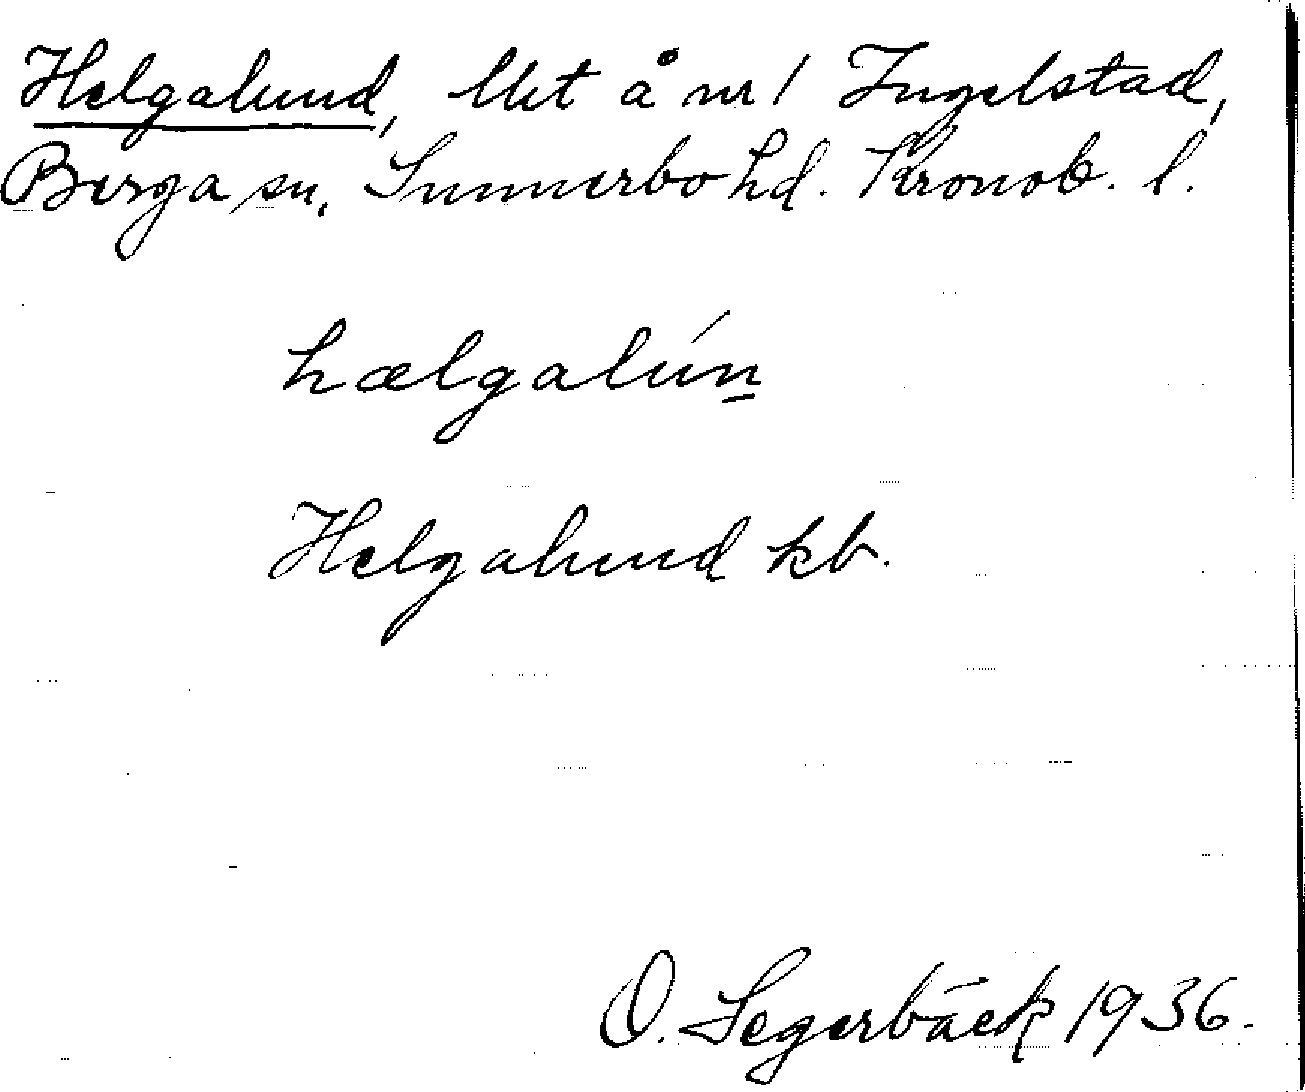 Helgalund, lht å nr 1 Ingelstad,
Berga sn, Sunnerbo hd. Kronob. l.
hælgalún
Helgalund kb.
O. Segerbäck 1936.